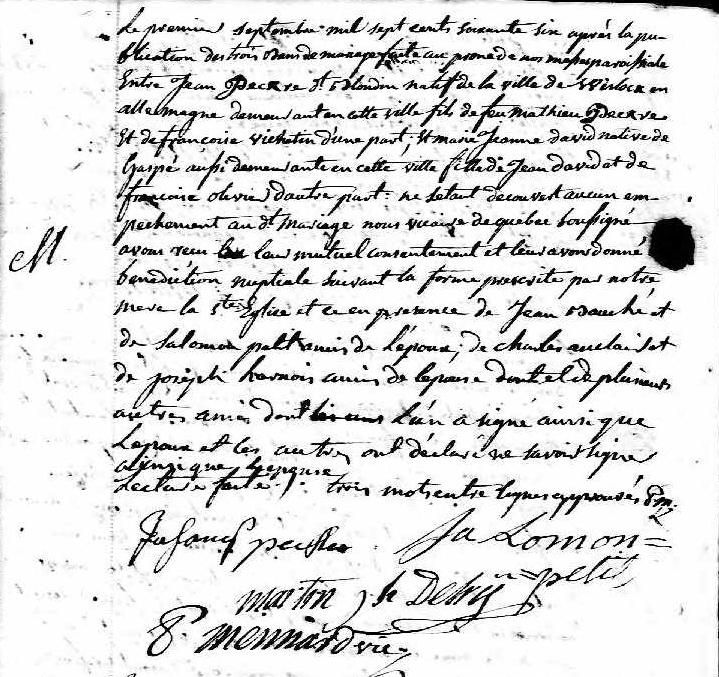 Le premier septembre mil sept cents soixante six après la pu-
blication des trois bans de mariage faite au prone de nos messes paroissiale
Entre Jean Peckre dt Blondin natif de la ville de en
allemagne demeurant en cette ville fils de feu Mathieu Peckre
Et de francoise d'une part, Et marie Jeanne david native de
Gaspé aussi demeurante en cette ville fille de Jean david et de
francoise olivie d'autre part: ne setant decouvert aucun em-
pechement au dt Mariage nous vicaire de quebec soussigné
M.
avons recu leur mutuel consentement et leur avons donné
benediction nuptiale suivant la forme prescrite par notre
mere la ste Eglise et ce en presence de Jean et
de salomon petit amis de l'epoux, de charles auclair et
de joseph amis de lepouse dont et de plusieurs
autres amis dont L'un a signé ainsi que
Lepoux et les autres ont déclaré ne savoir signer
ainsi que lepouse
Lecture faite. trois mots entre lignes approuvés P. m.
Salomon =
= petit
martin
P. mennard vic.